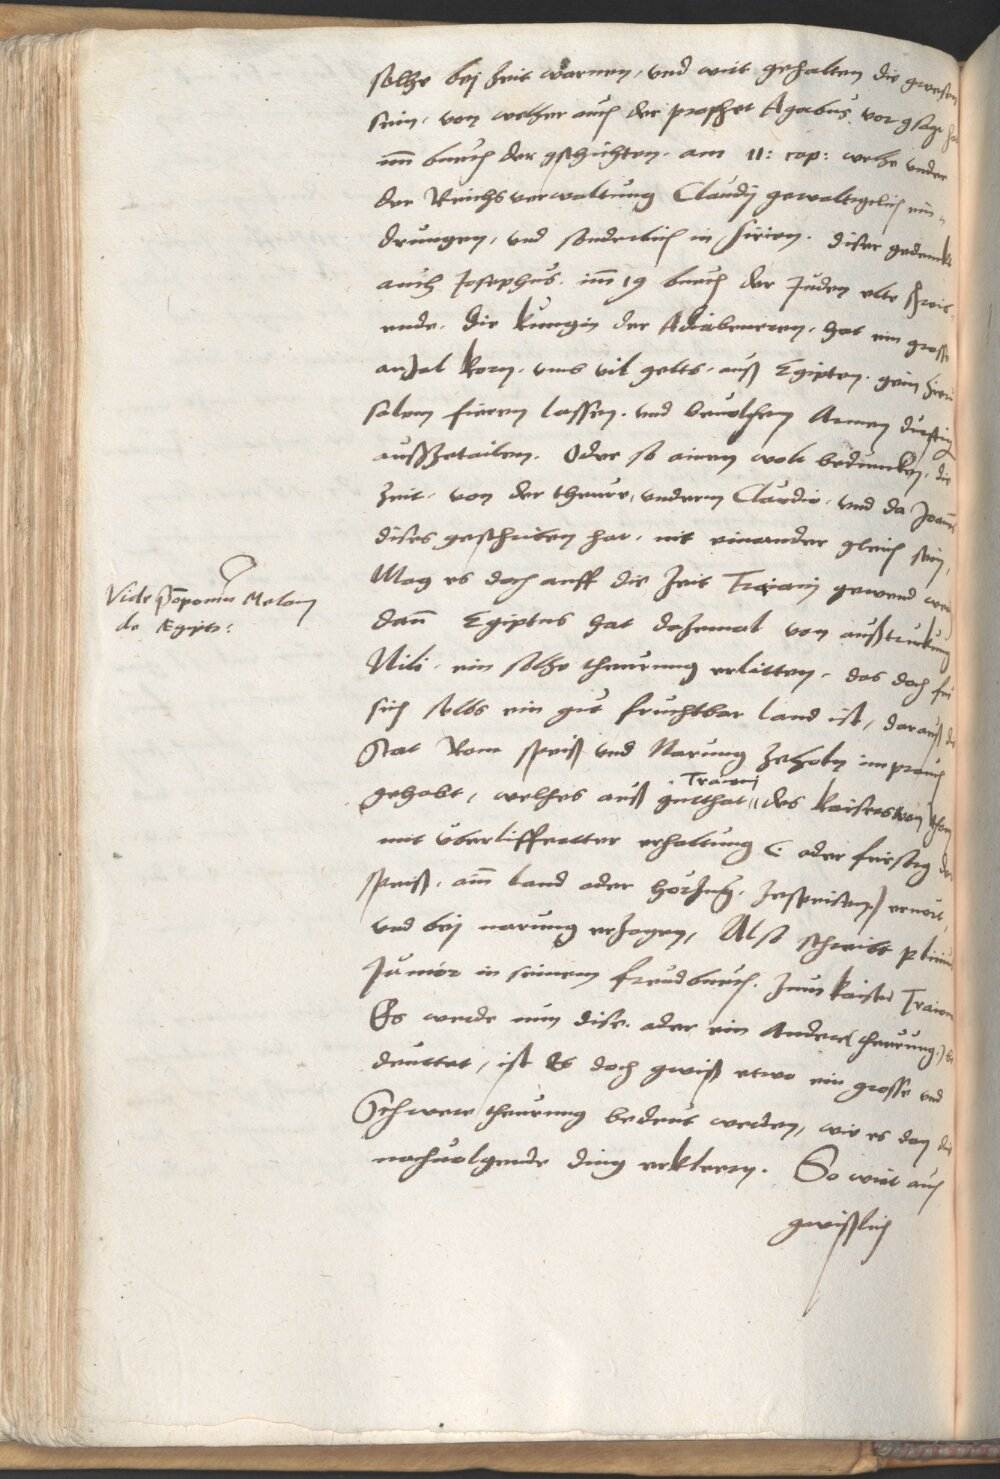 solhe bej zeit warnen, und wirt gehalten die gwesen
sein, von welher auch der prophet Agabus vor gsagt
im buech der gschichten. am 11: cap: welhe under
der Reichsverwaltung Claudij gewaltigelich ein-
drungen, und sonderlich in sirien. diser gedenckt
auch Josephus. im 19 buech der Juden alte
ende. die kungin der Adiabeneren. hat ein grosse
anzal korn. umb vil gelts. auß Egipten. gein Jheru
salem fieren lassen. und bevolhen Armen durftig
außzetailen. Oder so ainem wolt beduncken, die
zeit. von der theure, underm Claudio. und da Joann
dises geschriben hat. nit einander gleich sein,
Mag es doch auff die zeit Traiani gewend wer
dann Egiptus hat dazemal von außtruckung
Nili. ein solhe theurung erlitten. das doch für
sich selbs ein gut fruchtbar land ist, darauß die
Stat Rom speiß und Narung zeholen im prauch
gehabt, welhes auß gutthat Traiani des kaisers von
mit uberliffertter erhaltung (: oder
speiß. am land oder zespeisen) ernört,
und bej narung erzogen, Also schreibt plinius
Junior in seinem freudbuech. zum kaiser Traian
Es werde nun dise. oder ein Andere (theurung.) be
deuttet, ist Es doch gwiß etwo ein grosse und
Schwere theurung bedeut werden, wie es dan die
nachvolgende ding erkleren. So wirt auch
gwißlich
Vide Pomponiu Melam
de Ægipto: